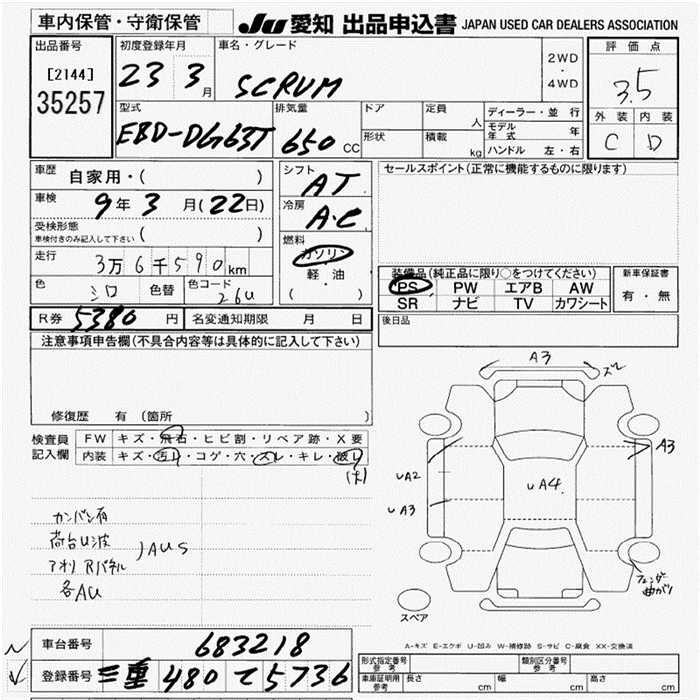 車内保管・守衛保管
JU 愛知 出品申込書 JAPAN USED CAR DEALERS ASSOCIATION
出品番号
[2144]
35257
初度登録年月
23 3 月
車名・グレード
SCRUM
2WD
・
4WD
評価点
3.5
外装 内装
C D
型式
EBD-DG63T
排気量
650 CC
ドア
形状
定員
人
積載
kg
ディーラー・並行
モデル年式 年
ハンドル 左・右
車歴
自家用・( )
車検
9年 3月(22日)
受検形態
車検付きのみ記入して下さい ( )
走行
3万6千590km
色 シロ 色替 色コード 26U
シフト
AT
冷房
A・C
燃料
ガソリン
軽・油
( )
セールスポイント(正常に機能するものに限ります)
装備品(純正品に限り○をつけてください)
PS PW エアB AW
SR ナビ TV カワシート
新車保証書
有・無
R券 5380 円 名変通知期限 月 日
後日品
注意事項申告欄(不具合内容等は具体的に記入して下さい)
修復歴 有 (箇所
検査員
記入欄
FW キズ・飛石・ヒビ割・リペア跡・X要
内装 キズ・汚れ・コゲ・穴・スレ・キレ・破れ
(大)
カンバン有
荷台U波
アオリ Rパネル
各AU
A3
ズレ
A3
UA2
UA3
UA4.
フェンダー
曲がり
スペア
A-キズ E-エクボ U-凹み W-補修跡 S-サビ C-腐食 XX-交換済
車台番号 683218
登録番号 三重 480 て 5736
形式指定番号
参考
類別区分番号
参考
車庫証明用
参考
長さ cm 幅 cm 高さ cm